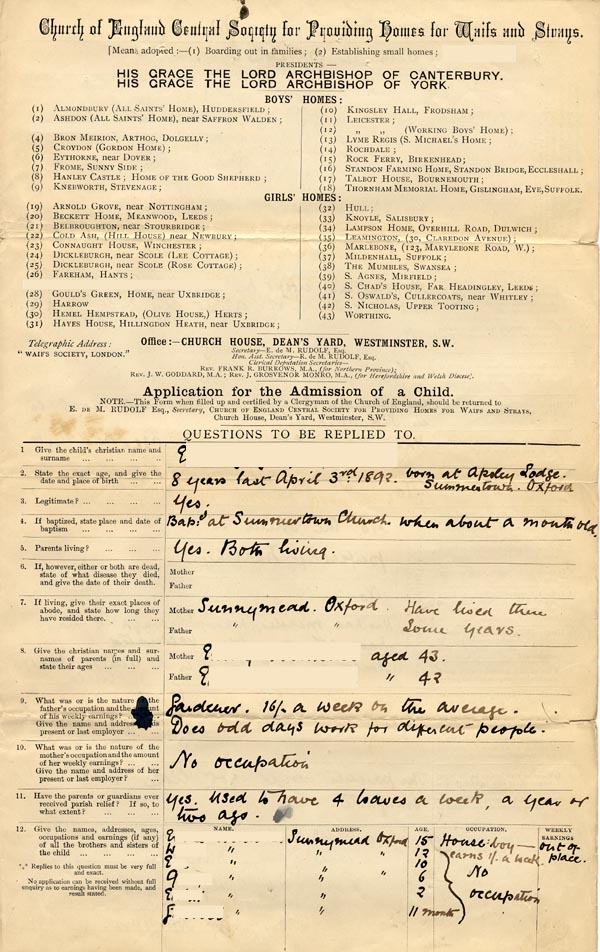 Church of England Central Society for Providing Homes for Waifs and Strays.
[Means adopted :—(1) Boarding out in families; (2) Establishing small homes;
PRESIDENTS —
HIS GRACE THE LORD ARCHBISHOP OF CANTERBURY.
HIS GRACE THE LORD ARCHBISHOP OF YORK.
BOYS' HOMES:
(1) ALMONDBURY (ALL SAINTS' HOME), HUDDERSFIELD;
(2) ASHDON (ALL SAINTS' HOME), near SAFFRON WALDEN;
(4) BRON MEIRION, ARTHOG, DOLGELLY;
(5) CROYDON (GORDON HOME);
(6) EYTHORNE, near DOVER;
(7) FROME, SUNNY SIDE;
(8) HANLEY CASTLE; HOME OF THE GOOD SHEPHERD;
(9) KNEBWORTH, STEVENAGE;
(10) KINGSLEY HALL, FRODSHAM;
(11) LEICESTER;
(12) " " (WORKING BOYS' HOME);
(13) LYME REGIS (S. MICHAEL'S HOME;
(14) ROCHDALE;
(15) ROCK FERRY, BIRKENHEAD;
(16) STANDON FARMING HOME, STANDON BRIDGE, ECCLESHALL;
(17) TALBOT HOUSE, BOURNEMOUTH;
(18) THORNHAM MEMORIAL HOME, GISLINGHAM, EYE, SUFFOLK.
GIRLS' HOMES:
(19) ARNOLD GROVE, near NOTTINGHAM;
(20) BECKETT HOME, MEANWOOD, LEEDS;
(21) BELBROUGHTON, near STOURBRIDGE;
(22) COLD ASH, (HILL HOUSE) near NEWBURY;
(23) CONNAUGHT HOUSE, WINCHESTER;
(24) DICKLEBURGH, near SCOLE (LEE COTTAGE);
(25) DICKLEBURGH, near SCOLE (ROSE COTTAGE);
(26) FAREHAM, HANTS;
(28) GOULD'S GREEN, HOME, near UXBRIDGE;
(29) HARROW
(30) HEMEL HEMPSTEAD, (OLIVE HOUSE,) HERTS;
(31) HAYES HOUSE, HILLINGDON HEATH, near UXBRIDGE;
(32) HULL;
(33) KNOYLE, SALISBURY;
(34) LAMPSON HOME, OVERHILL ROAD, DULWICH;
(35) LEAMINGTON, (30, CLAREDON AVENUE);
(36) MARLEBONE, (123, MARYLEBONE ROAD, W.);
(37) MILDENHALL, SUFFOLK;
(38) THE MUMBLES, SWANSEA;
(39) S. AGNES, MIRFIELD;
(40) S. CHAD'S HOUSE, FAR HEADINGLEY, LEEDS;
(41) S. OSWALD'S, CULLERCOATS, near WHITLEY;
(42) S. NICHOLAS, UPPER TOOTING;
(43) WORTHING.
Telegraphic Address:
" WAIFS SOCIETY, LONDON."
Office:—CHURCH HOUSE, DEAN'S YARD, WESTMINSTER, S.W.
Secretary—E. de M. RUDOLF, Esq.
Hon. Asst. Secretary—R. de M. RUDOLF, Esq.
Clerical Deputation Secretaries—
Rev. FRANK R. BURROWS, M.A., (for Northern Province);
Rev. J. W. GODDARD, M.A.; Rev. J. GROSVENOR MONRO, M.A., (for Herefordshire and Welsh Diocese).
Application for the Admission of a Child.
NOTE.—This Form when filled up and certified by a Clergyman of the Church of England, should be returned to
E. DE M. RUDOLF Esq., Secretary, CHURCH OF ENGLAND CENTRAL SOCIETY FOR PROVIDING HOMES FOR WAIFS AND STRAYS,
Church House, Dean's Yard, Westminster, S.W.
QUESTIONS TO BE REPLIED TO.
1 Give the child's christian name and
surname
E
2. State the exact age, and give the
date and place of birth
8 years last April 3rd 1892. born at Apsley Lodge.
Summertown. Oxford
3. Legitimate?
Yes.
4. If baptized, state place and date of
baptism
Bap:d at Summertown Church. when about a month old.
5. Parents living?
Yes. Both living.
6. If, however, either or both are dead,
state of what disease they died,
and give the date of their death.
Mother
Father
7. If living, give their exact places of
abode, and state how long they
have resided there.
Mother Sunnymead. Oxford. Have lived there
Father " " Some years.
8. Give the christian names and sur-
names of parents (in full) and
state their ages
Mother E aged 43.
Father E " 42
9. What was or is the nature of the
father's occupation and the amount
of his weekly earnings?
Give the name and address of his
present or last employer
Gardener. 16/- a week on the average.
Does odd days work for different people.
10. What was or is the nature of the
mother's occupation and the amount
of her weekly earnings?
Give the name and address of her
present or last employer?
No occupation
11. Have the parents or guardians ever
received parish relief? If so, to
what extent?
Yes. Used to have 4 loaves a week, a year or
two ago.
12. Give the names, addresses, ages,
occupations and earnings (if any)
of all the brothers and sisters of
the child
"*" Replies to this question must be very full
and exact.
No application can be received without full
enquiry as to earnings having been made, and
result stated.
NAME. ADDRESS. AGE. OCCUPATION. WEEKLY EARNINGS
E Sunnymead Oxford 15 House boy — out of place.
" " 12 earns 1/- a week.
E " " 10
" " 6 No
E " " 2 occupation
F " " 11 month